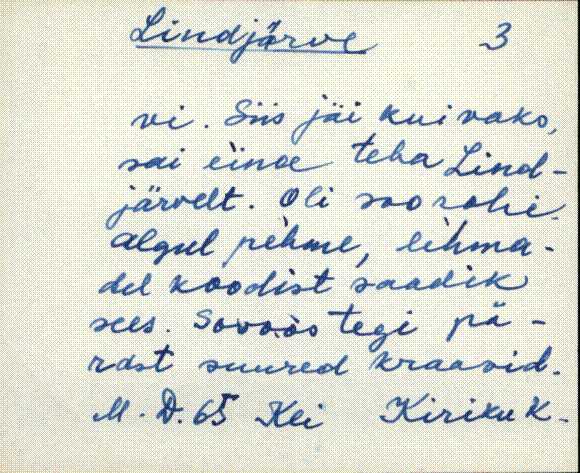 Lindjärve 3
vi. Siis jäi kuivako,
sai einoe teha Lind-
järvelt. Oli soo rohi.
Algul pehme, lehma-
del koodist saadik
sees. Sovoos tegi pä-
räst suured kraavid.
M. D. 65 Kei Kirikuk.